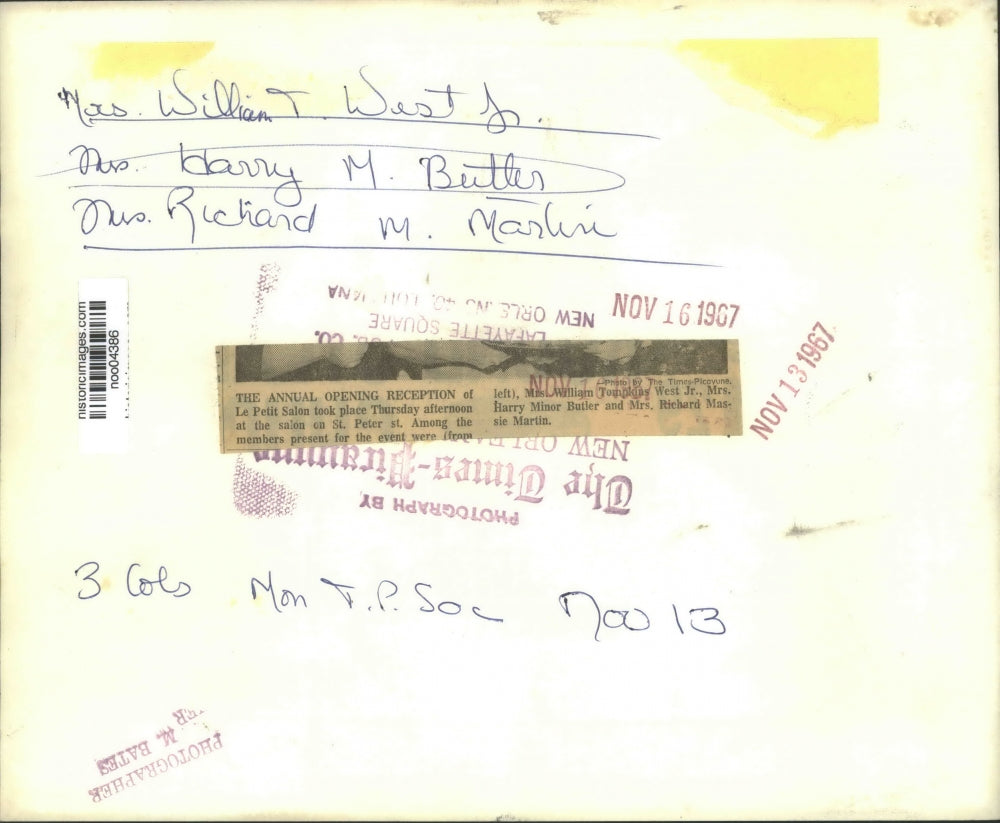 Mrs. William T. West Jr.
Mrs. Harry M. Butler
Mrs. Richard M. Martin
historicimages.com
noo04386
NOV 16 1967
NEW ORLEANS 40, LOUISIANA
LAFAYETTE SQUARE
CO.
NOV 13 1967
Photo by The Times-Picayune.
THE ANNUAL OPENING RECEPTION of
Le Petit Salon took place Thursday afternoon
at the salon on St. Peter st. Among the
members present for the event were (from
left), Mrs. William Tompkins West Jr., Mrs.
Harry Minor Butler and Mrs. Richard Mas-
sie Martin.
NOV 1
NEW ORLEANS
The Times-Picayune
PHOTOGRAPH BY
3 Cols Mon T.P. Soc Nov 13
M. BATES
PHOTOGRAPHER